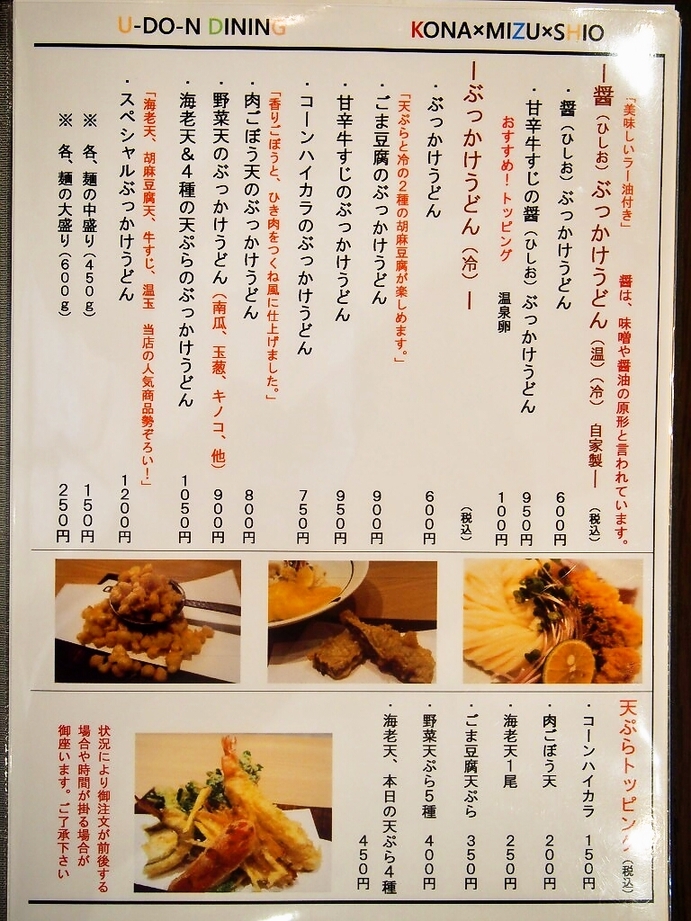 U-DO-N DINING
KONA×MIZU×SHIO
「美味しいラー油付き」　醤は、味噌や醤油の原形と言われています。
―醤（ひしお）ぶっかけうどん（温）（冷）　自家製―　（税込）
・醤（ひしお）ぶっかけうどん　600円
・甘辛牛すじの醤（ひしお）ぶっかけうどん　950円
おすすめ！トッピング　温泉卵　100円
―ぶっかけうどん（冷）―　（税込）
・ぶっかけうどん　600円
「天ぷらと冷の2種の胡麻豆腐が楽しめます。」
・ごま豆腐のぶっかけうどん　900円
・甘辛牛すじのぶっかけうどん　950円
・コーンハイカラのぶっかけうどん　750円
「香りごぼうと、ひき肉をつくね風に仕上げました。」
・肉ごぼう天のぶっかけうどん　800円
・野菜天のぶっかけうどん（南瓜、玉葱、キノコ、他）　900円
・海老天&4種の天ぷらのぶっかけうどん　1050円
「海老天、胡麻豆腐天、牛すじ、温玉　当店の人気商品勢ぞろい！」
・スペシャルぶっかけうどん　1200円
※　各、麺の中盛り（450g）　150円
※　各、麺の大盛り（600g）　250円
天ぷらトッピング（税込）
・コーンハイカラ　150円
・肉ごぼう天　200円
・海老天1尾　250円
・ごま豆腐天ぷら　350円
・野菜天ぷら5種　400円
・海老天、本日の天ぷら4種　450円
状況により御注文が前後する
場合や時間が掛る場合が
御座います。ご了承下さい